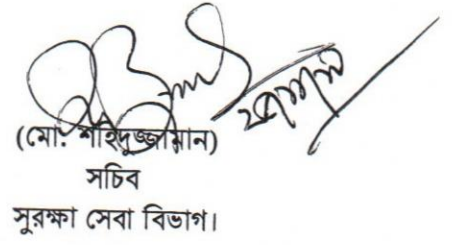 (মো. শহিদুজ্জামান)
সচিব
সুরক্ষা সেবা বিভাগ।